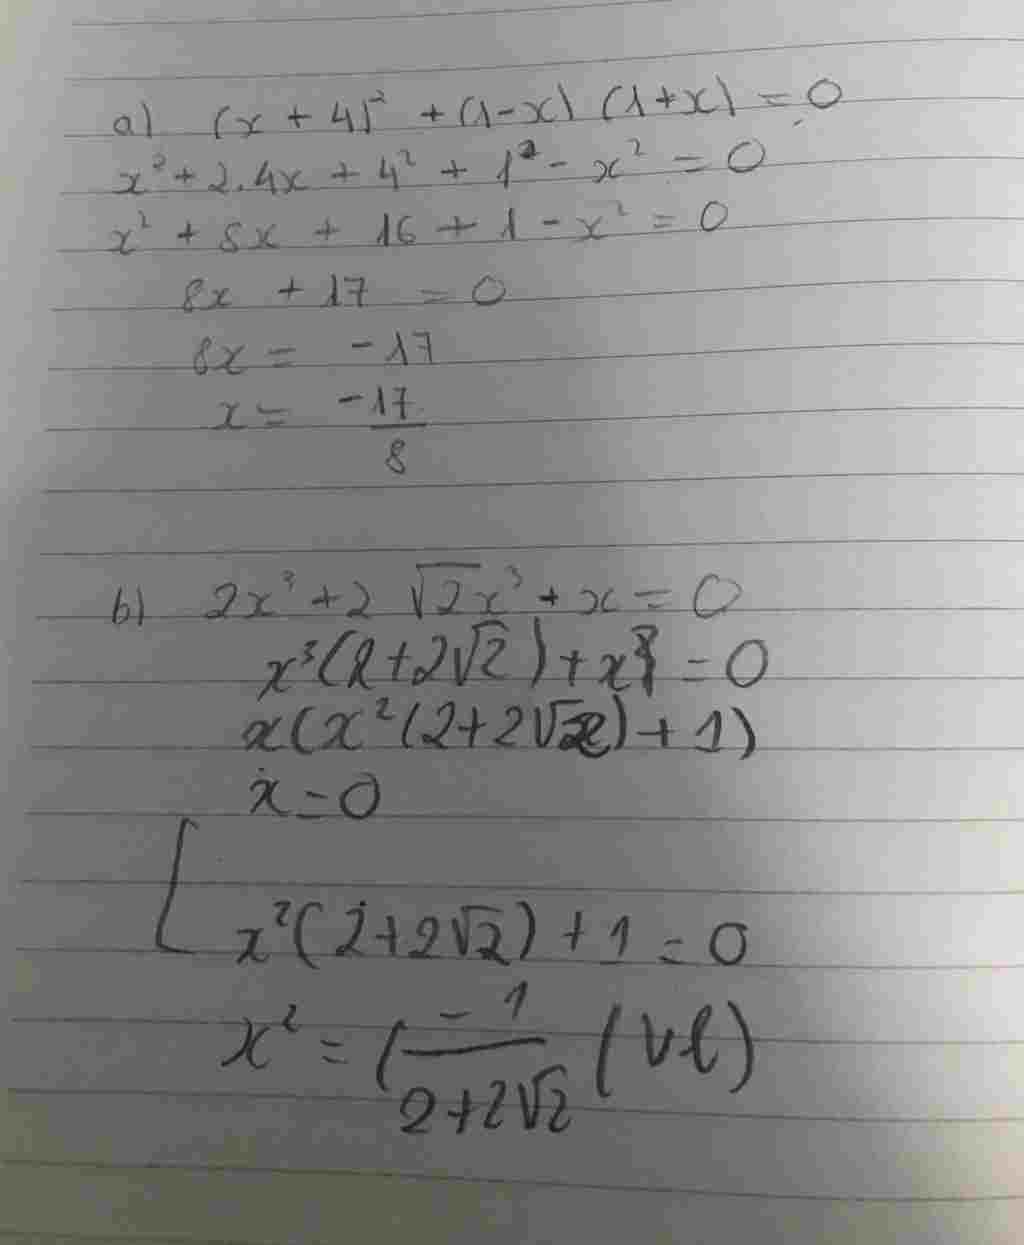 a) (x + 4)² + (1-x) (1+x) = 0
x² + 2.4x + 4² + 1² - x² = 0
x² + 8x + 16 + 1 - x² = 0
8x + 17 = 0
8x = -17
x = -17/8
b) 2x³ + 2 √2x³ + x = 0
x³(2+2√2) + x = 0
x(x²(2+2√2) + 1)
x = 0
x²(2+2√2) + 1 = 0
x² = (-1/2+2√2 (vl)